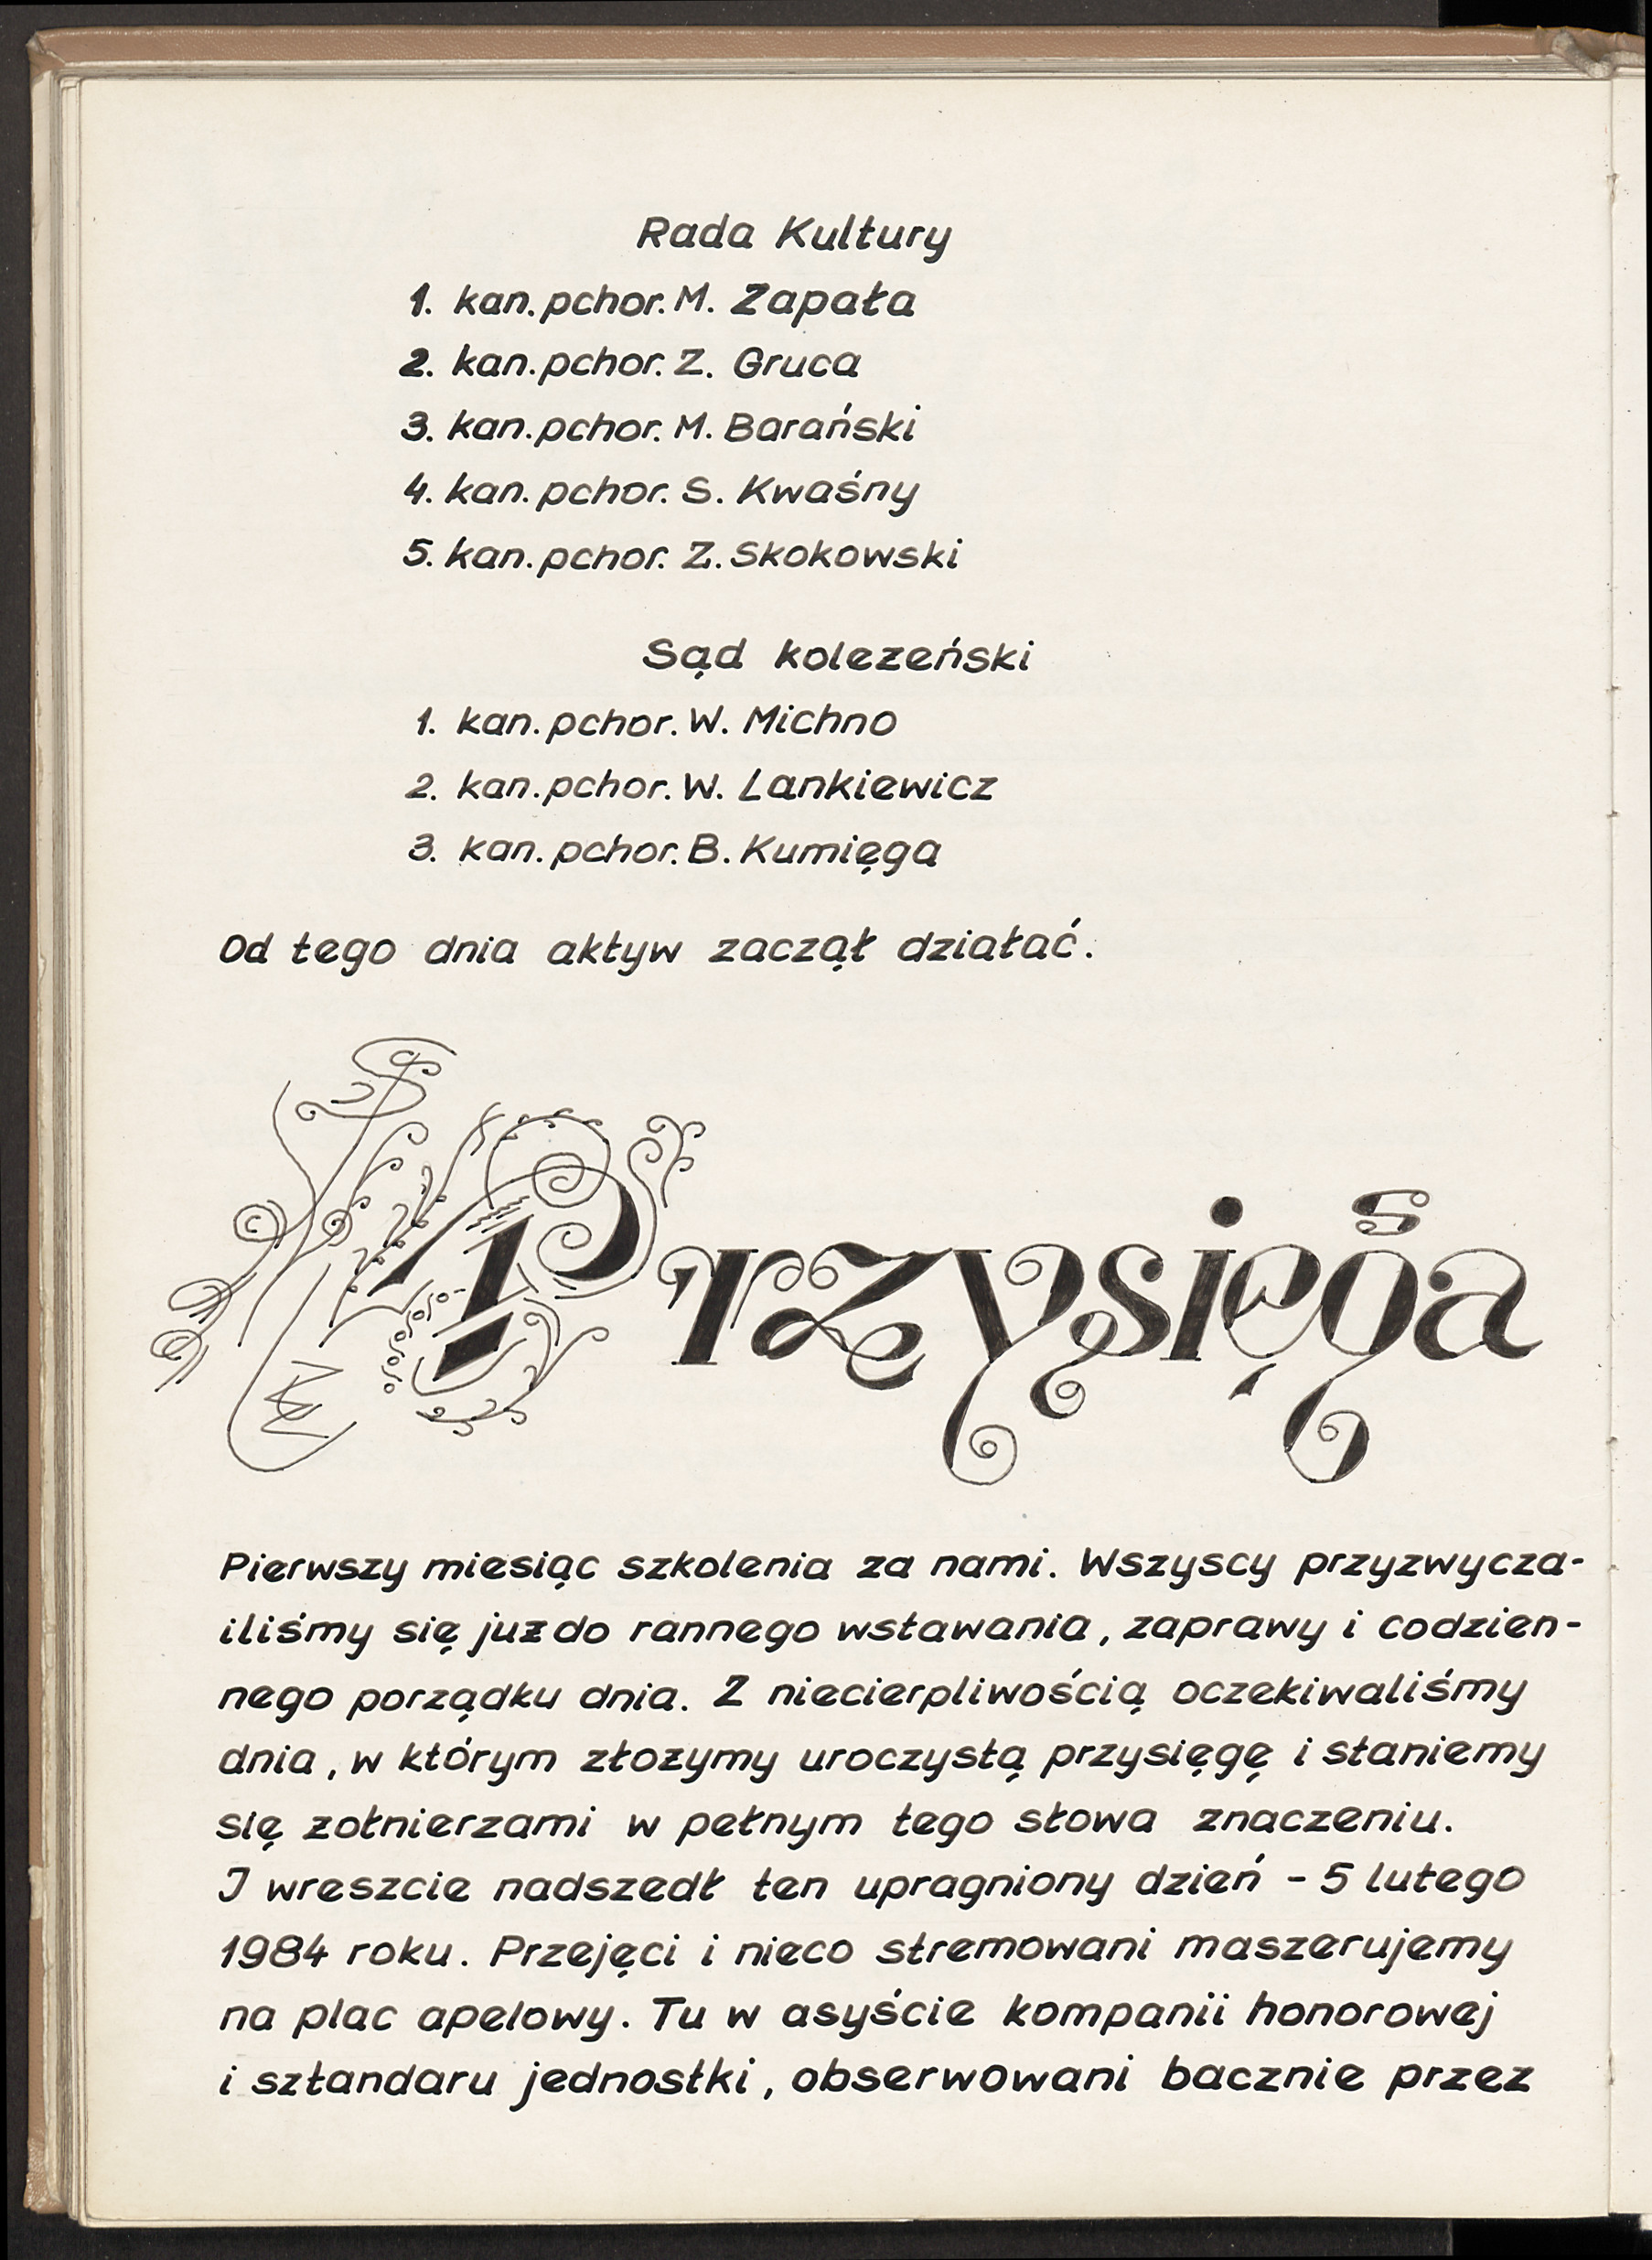 Rada Kultury
1. kan. pchor. M. Zapała
2. kan. pchor. Z. Gruca
3. kan. pchor. M. Barański
4. kan. pchor. S. Kwaśny
5. kan. pchor. Z. Skokowski
Sąd kolezeński
1. kan. pchor. W. Michno
2. kan. pchor. W. Lankiewicz
3. kan. pchor. B. Kumięga
Od tego dnia aktyw zaczął działać.
Przysięga
Pierwszy miesiąc szkolenia za nami. Wszyscy przyzwycza-
iliśmy się juz do rannego wstawania, zaprawy i codzien-
nego porządku dnia. Z niecierpliwością oczekiwaliśmy
dnia, w którym złozymy uroczystą przysięgę i staniemy
się zołnierzami w pełnym tego słowa znaczeniu.
I wreszcie nadszedł ten upragniony dzień - 5 lutego
1984 roku. Przejęci i nieco stremowani maszerujemy
na plac apelowy. Tu w asyście kompanii honorowej
i sztandaru jednostki, obserwowani bacznie przez